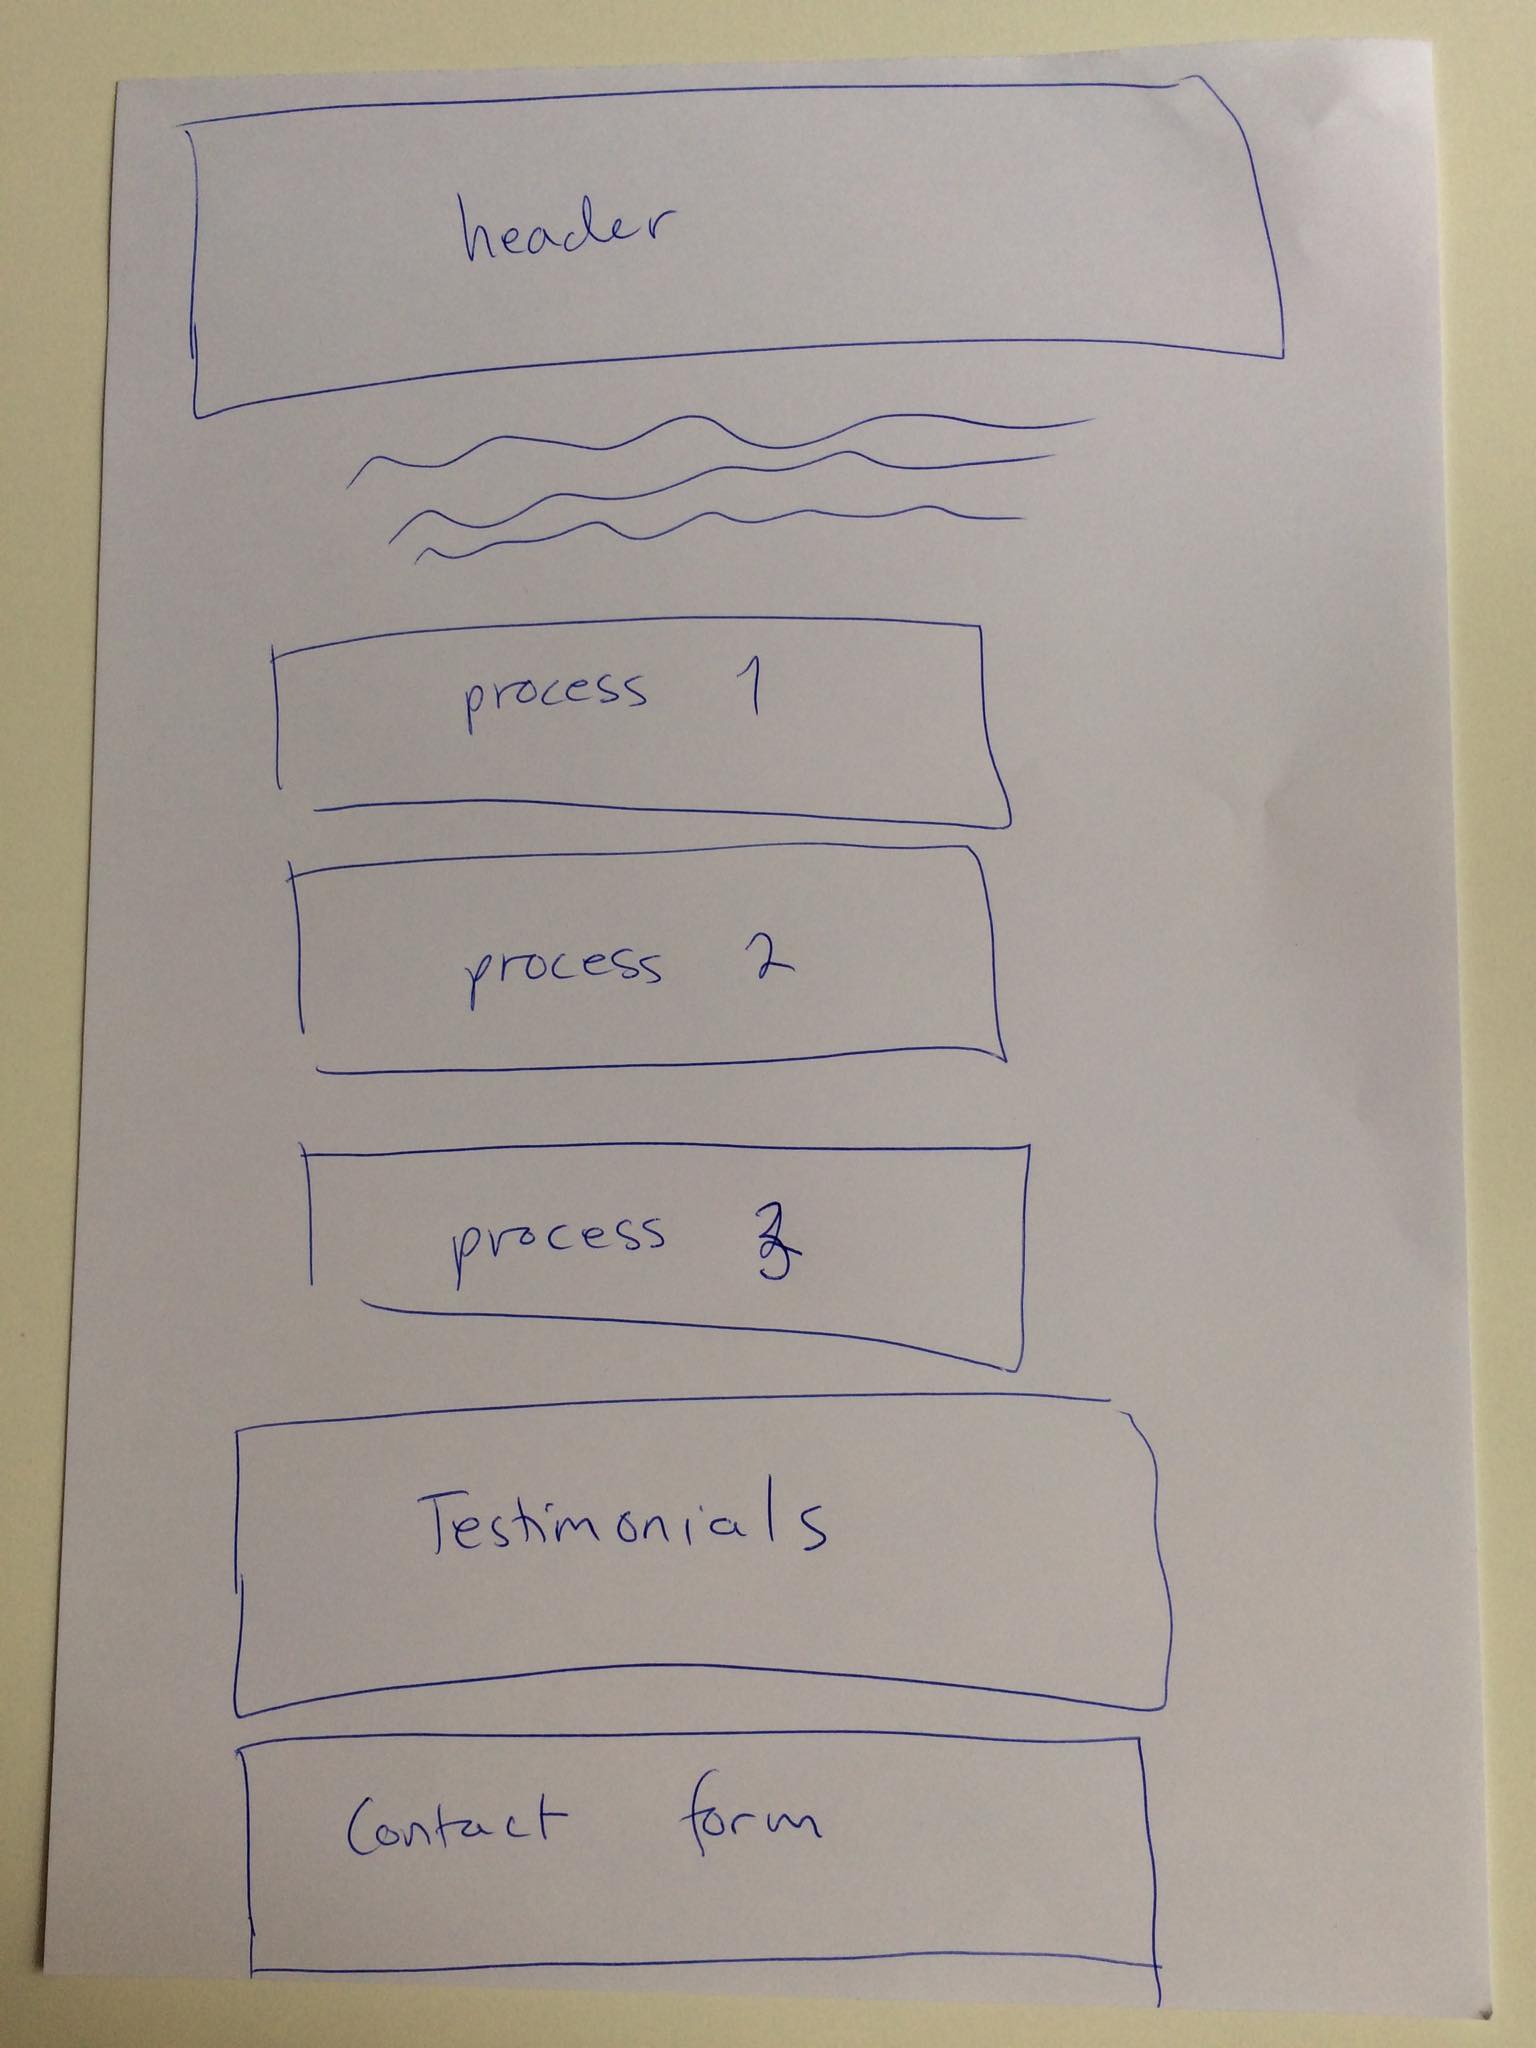 header
process 1
process 2
process 3
Testimonials
Contact form